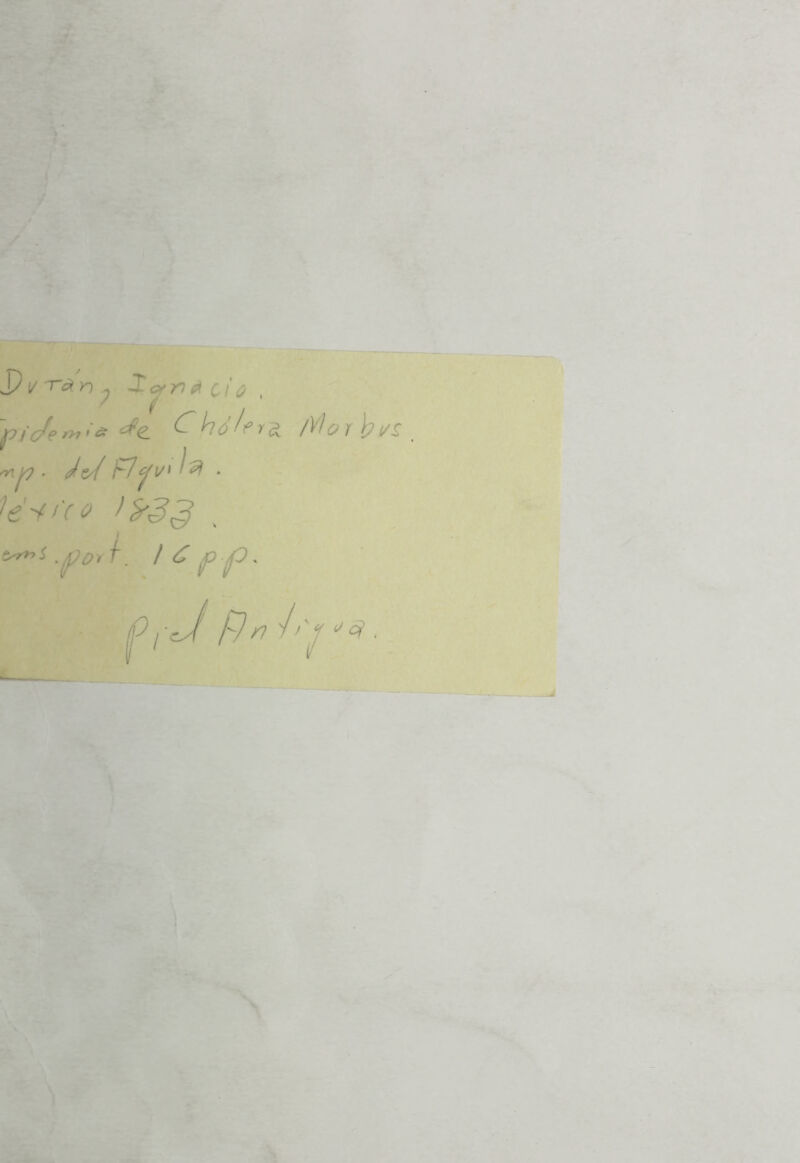 Durán, Ignacio.
pidemia de Chólera Morbus.
mp. del Aguila.
éxico 1833.
ems. port. 16 pp.
piel Antigua.